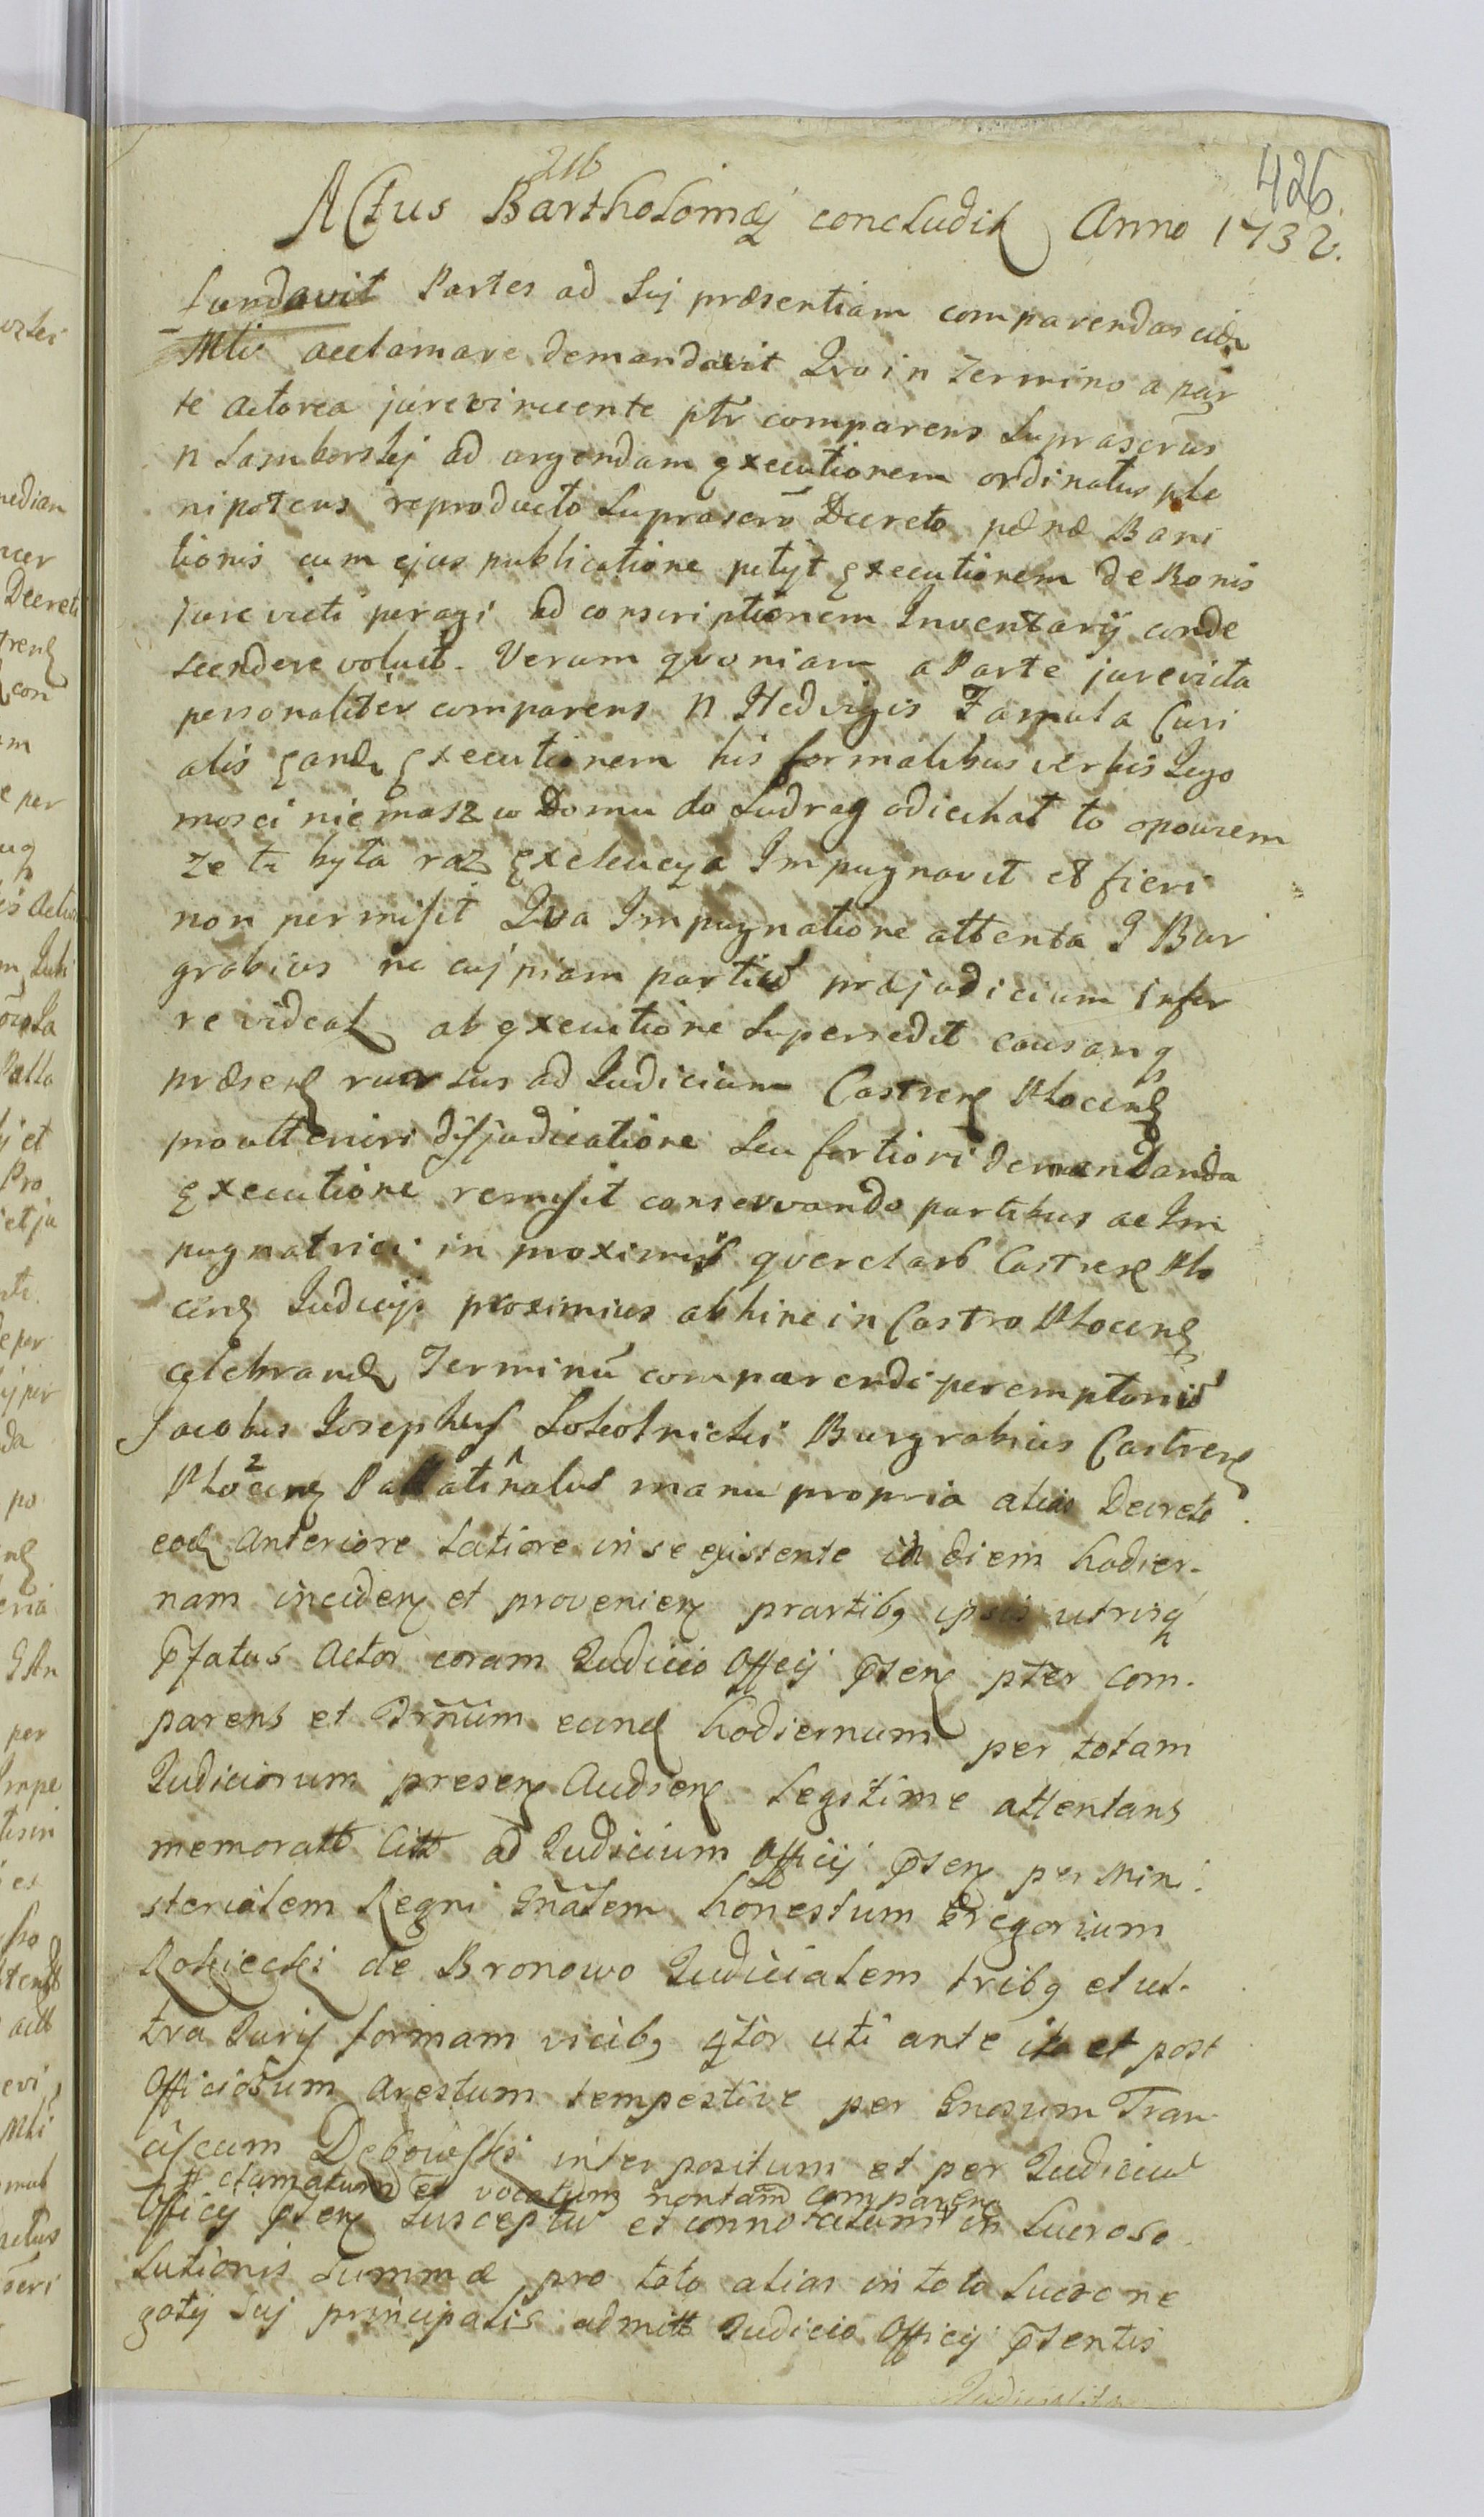 216
426.
Actus Bartholomæj concludit Anno 1732.
fundavit Partes ad Suj præsentiam comparendas eidē
Mti acclamare demandavit Qvo in Termino a par
te Actorea jurevincente ptr comparens Suprascrus
N Lamborskj ad urgendam Executionem ordinatus ple
nipotens reproducto Suprascro Decreto pænæ Bani
tionis cum ejus publicatione petijt Executionem de Bonis
Jurevicti peragi ad conscriptionem Inventarij conde
scendere voluit. Verum qvoniam a Parte jurevicta
personaliter comparens N Hedvigis Famula Curi
alis Eand Executionem his formalibus verbis Jego
mosci nie masz w Domu do Sudrag odiechał to opowiem
ze tu była raz Exekucya Impugnavit et fieri
non permisit Qva Impugnatione attenta G Bur
grabius ne cujpiam partiū præjudicium infer
re videat ab Executione Supersedit causang
præsen rursus ad Judicium Castren Plocen
pro ulteriori disjudicatione seu fortiori demandanda
Executione remisit conservando partibus ac Im
pugnatrici in proximis qverelarō Castren Plo
cen Judicijs proximius abhinc in Castro Plocen
celebrand Terminū comparendi peremptoriū
Jacobus Josephus Sokolnicki Burgrabius Castren
Plocen Pallatinatus manu propria alias Decreto
eod Anteriore Latiore in se existente in diem hodier-
nam inciden et provenien partibq ipsis utrisq
Pfatus Actor coram Judicio Officij Psen pter com-
parens et Trnum eund hodiernum per totam
Judiciorum presen Audien Legitime attentans
memoratt Citt ad Judicium Officij Psen per Mini-
sterialem Regni Gnalem honestum Gregorium
Rokiecki de Bronowo Judicialem tribq et ul-
tra Juris formam vicibq qtor uti ante ita et post
Officiosum Arestum tempestive per Gnosum Fran-
ciscum Debowski interpositum et per Judiciū
# clamatum et vocatum non tam comparen
Officij Psen susceptū et connotatum # in Lucro so
lutionis Summæ pro toto alias in toto Lucro ne
gotij Suj principalis admitt Judicio Officij Psentis
Judicialiter